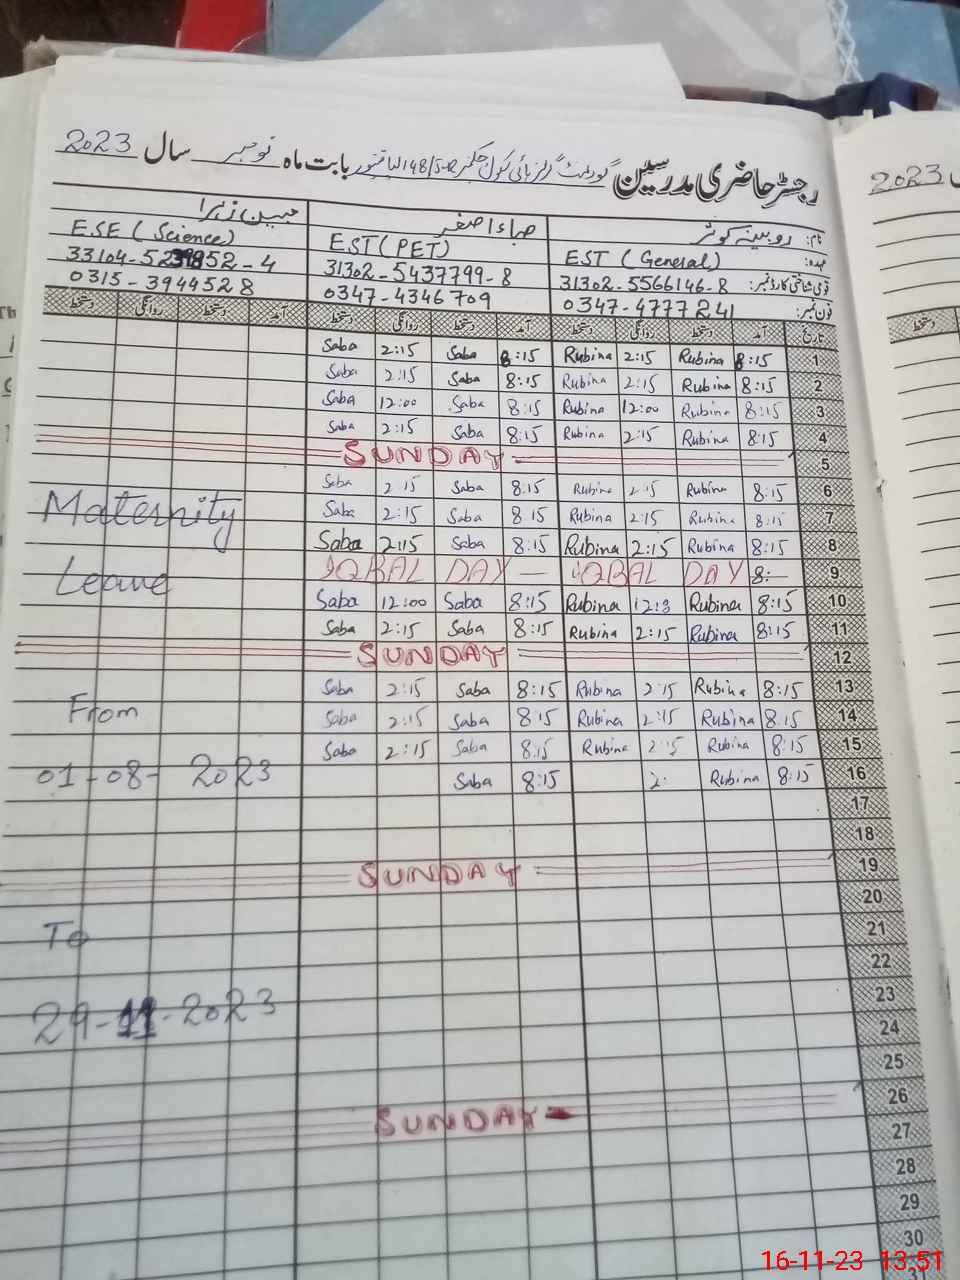 رجسٹر حاضری مدرسین گورنمنٹ گرلز ہائی سکول چکنمبر 148/5-R لیاقتپور بابت ماہ نومبر سال 2023
2023
نام: روبینہ کوثر صباء اصغر جبین زہرا
عہدہ: EST (General) EST (PET) ESE (Science)
قومی شناختی کارڈ نمبر: 31302-5566146-8 31302-5437799-8 33104-5239852-4
فون نمبر: 0347-4777241 0347-4346709 0315-3944528
تاریخ آمد دستخط روانگی دستخط آمد دستخط روانگی دستخط آمد دستخط روانگی دستخط
دستخط
Saba 2:15 Saba 8:15 Rubina 2:15 Rubina 8:15 1
Saba 2:15 Saba 8:15 Rubina 2:15 Rubina 8:15 2
Saba 12:00 Saba 8:15 Rubina 12:00 Rubina 8:15 3
Saba 2:15 Saba 8:15 Rubina 2:15 Rubina 8:15 4
SUNDAY 5
Saba 2:15 Saba 8:15 Rubina 2:15 Rubina 8:15 6
Maternity Saba 2:15 Saba 8:15 Rubina 2:15 Rubina 8:15 7
Saba 2:15 Saba 8:15 Rubina 2:15 Rubina 8:15 8
Leave IQBAL DAY — IQBAL DAY 8:— 9
Saba 12:00 Saba 8:15 Rubina Rubina 8:15 10
Saba 2:15 Saba 8:15 Rubina 2:15 Rubina 8:15 11
SUNDAY 12
Saba 2:15 Saba 8:15 Rubina 2:15 Rubina 8:15 13
From Saba 2:15 Saba 8:15 Rubina 2:15 Rubina 8:15 14
Saba 2:15 Saba 8:15 Rubina 2:15 Rubina 8:15 15
01-08-2023 Saba 8:15 2. Rubina 8:15 16
17
18
SUNDAY 19
20
To 21
22
23
29-11-2023 24
25
26
SUNDAY 27
28
29
30
16-11-23 13:51